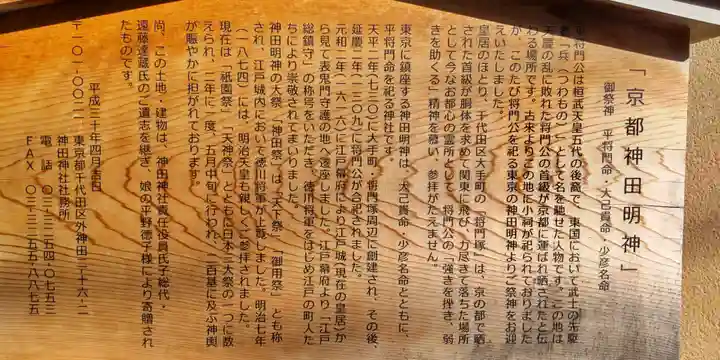 「京都神田明神」
御祭神 平将門命・大己貴命・少彦名命
将門公は桓武天皇五代の後裔で、東国において武士の先駆
「兵（つわもの）」として名を馳せた人物です。この地は、
天慶の乱に敗れた将門公の首級が京都に運ばれ晒されたと伝
わる場所です。古来よりこの地に小祠が祀られておりました
が、このたび将門公を祀る東京の神田明神よりご祭神をお迎
えいたしました。
皇居のほとり、千代田区大手町の「将門塚」は、京の都で晒
された首級が胴体を求めて関東に飛び、力尽きて落ちた場所
として、今なお都心の霊所として、将門公の「強きを挫き、弱
きを助くる」精神を慕い、参拝がたえません。
東京に鎮座する神田明神は、大己貴命・少彦名命とともに、
平将門命を祀る神社です。
天平二年（七三〇）に大手町・将門塚周辺に創建され、その後、
延慶二年（一三〇九）に将門公が合祀されました。
元和二年（一六一六）に江戸幕府により江戸城（現在の皇居）か
ら見て表鬼門守護の地へ遷座しました。江戸幕府より「江戸
総鎮守」の称号をいただき、徳川将軍をはじめ江戸の町人た
ちにより崇敬されてまいりました。
神田明神の大祭「神田祭」は「天下祭」「御用祭」とも称
され、江戸城内において徳川将軍が上覧しました。明治七年
（一八七四）には、明治天皇も親しくご参拝されました。
現在は「祇園祭」「天神祭」とともに日本三大祭の一つに数
えられ、二年に一度、五月中旬に行われ、二百基に及ぶ神輿
が賑やかに担がれております。
尚、この土地・建物は、神田神社責任役員氏子総代・
遠藤達蔵氏のご遺志を継ぎ、娘の平野徳子様により寄贈され
たものです。
平成三十年四月吉日
〒一〇一-〇〇二一
東京都千代田区外神田二-十六-二
神田神社社務所
電話 〇三-三二五四-〇七五三
FAX 〇三-三二五五-八八七五